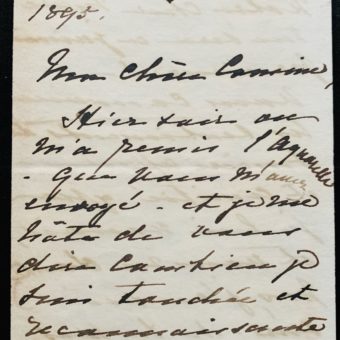 1895.
Ma chère Cousine,
Hier soir on
m'a remis l'aquarelle
- que vous m'avez
envoyé - et je me
hâte de vous
dire combien je
suis touchée et
reconnaissante